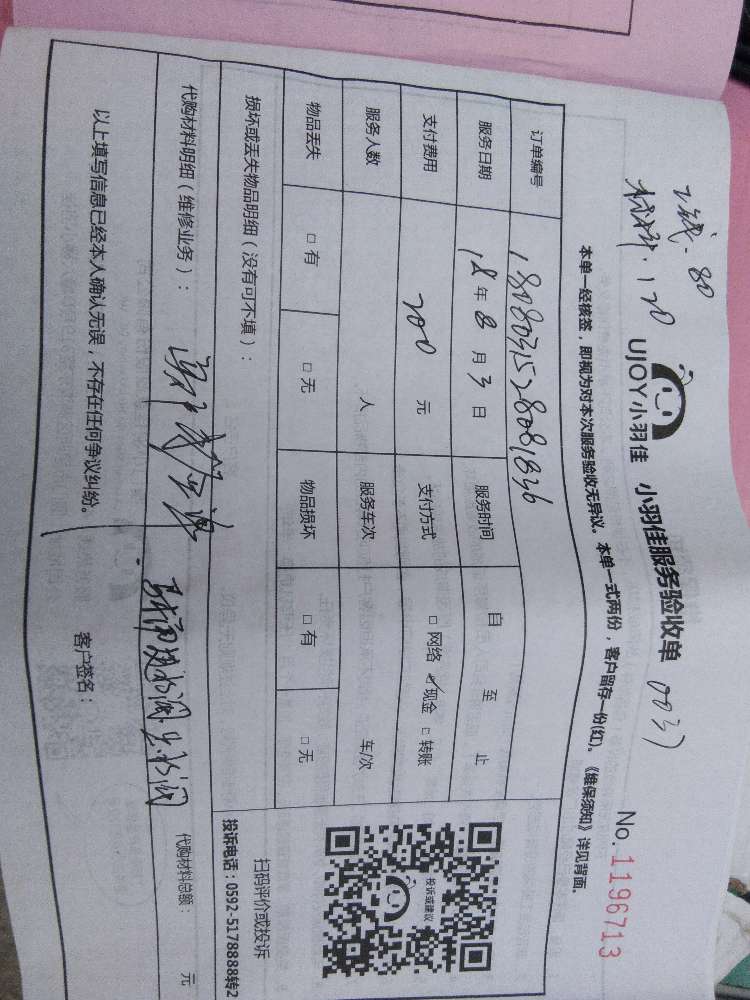 工钱·80
材料·120
UJOY小羽佳 小羽佳服务验收单 0037 No.1196713
本单一经核签,即视为对本次服务验收无异议。本单一式两份,客户留存一份(红)。《维保须知》详见背面。
订单编号 1808031528081836
服务日期 18年8月3日 服务时间 自 至 止
支付费用 200 元 支付方式 □网络 ☑现金 □转账
服务人数 人 服务车次 车/次
物品丢失 □有 □无 物品损坏 □有 □无
投诉或建议
扫码评价或投诉
投诉电话:0592-5178888转2
损坏或丢失物品明细(没有可不填):
代购材料明细(维修业务): 代购材料总额: 元
以上填写信息已经本人确认无误,不存在任何争议纠纷。 客户签名: